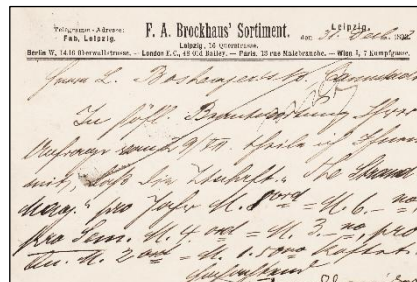 Telegramm-Adresse:
Fab, Leipzig.
F. A. Brockhaus' Sortiment.
Leipzig, 16 Querstrasse.
Leipzig,
den 31. Dec. 18
Berlin W., 14.16 Oberwallstrasse. — London E.C., 48 Old Bailey. — Paris, 13 rue Malebranche. — Wien I, 7 Kumpfgasse.
Herrn L.
In höfl. Beantwortung Ihrer
Anfrage 9/XII. theile ich Ihnen
mit, daß die Ztschft. „The Strand
mag." pro Jahr M. 8 ord = M. 6.— no
pro Sem. M. 4 ord = M. 3.— no, pro
M. 2 ord = M. 1.50 no kostet.